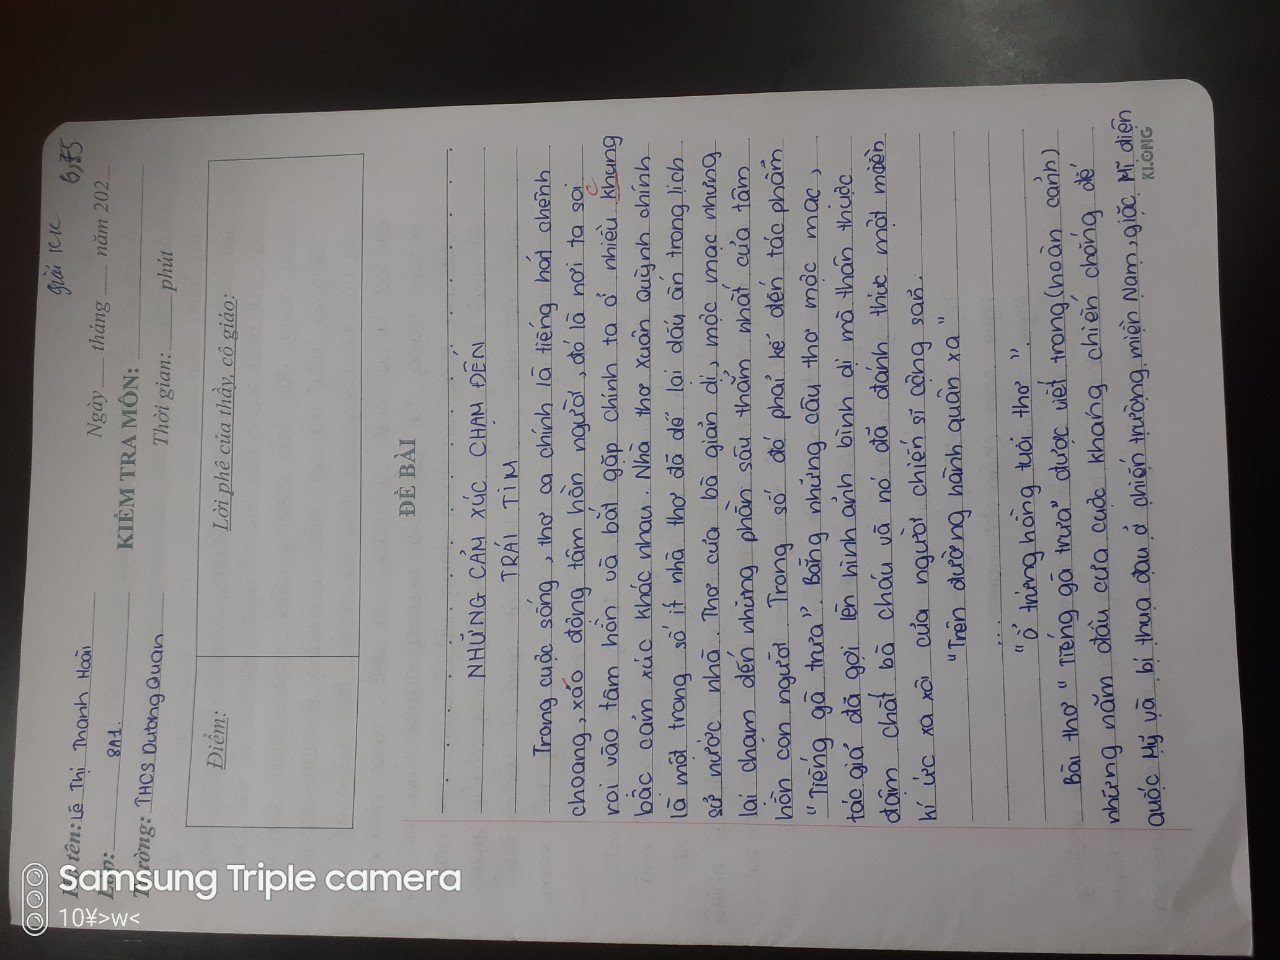 giải KK 6,75
Họ tên: Lê Thị Thanh Hoài Ngày tháng năm 202
Lớp: 8A1. KIỂM TRA MÔN:
Trường: THCS Dương Quan Thời gian: phút
Điểm: Lời phê của thầy, cô giáo:
ĐỀ BÀI
NHỮNG CẢM XÚC CHẠM ĐẾN
TRÁI TIM
Trong cuộc sống, thơ ca chính là tiếng hát chênh
choang, xáo động tâm hồn người, đó là nơi ta soi
rọi vào tâm hồn và bắt gặp chính ta ở nhiều khung
bậc cảm xúc khác nhau. Nhà thơ Xuân Quỳnh chính
là một trong số ít nhà thơ đã để lại dấu ấn trong lịch
sử nước nhà. Thơ của bà giản dị, mộc mạc nhưng
lại chạm đến những phần sâu thẳm nhất của tâm
hồn con người. Trong số đó phải kể đến tác phẩm
"Tiếng gà trưa". Bằng những câu thơ mộc mạc,
tác giả đã gợi lên hình ảnh bình dị mà thân thuộc
đậm chất bà cháu và nó đã đánh thức một miền
kí ức xa xôi của người chiến sĩ cộng sản.
"Trên đường hành quân xa"
...
"Ổ trứng hồng tuổi thơ".
Bài thơ "Tiếng gà trưa" được viết trong (hoàn cảnh)
những năm đầu của cuộc kháng chiến chống đế
quốc Mỹ và bị thua đau ở chiến trường miền Nam, giặc Mĩ điên
KLONG
Samsung Triple camera
10¥>w<